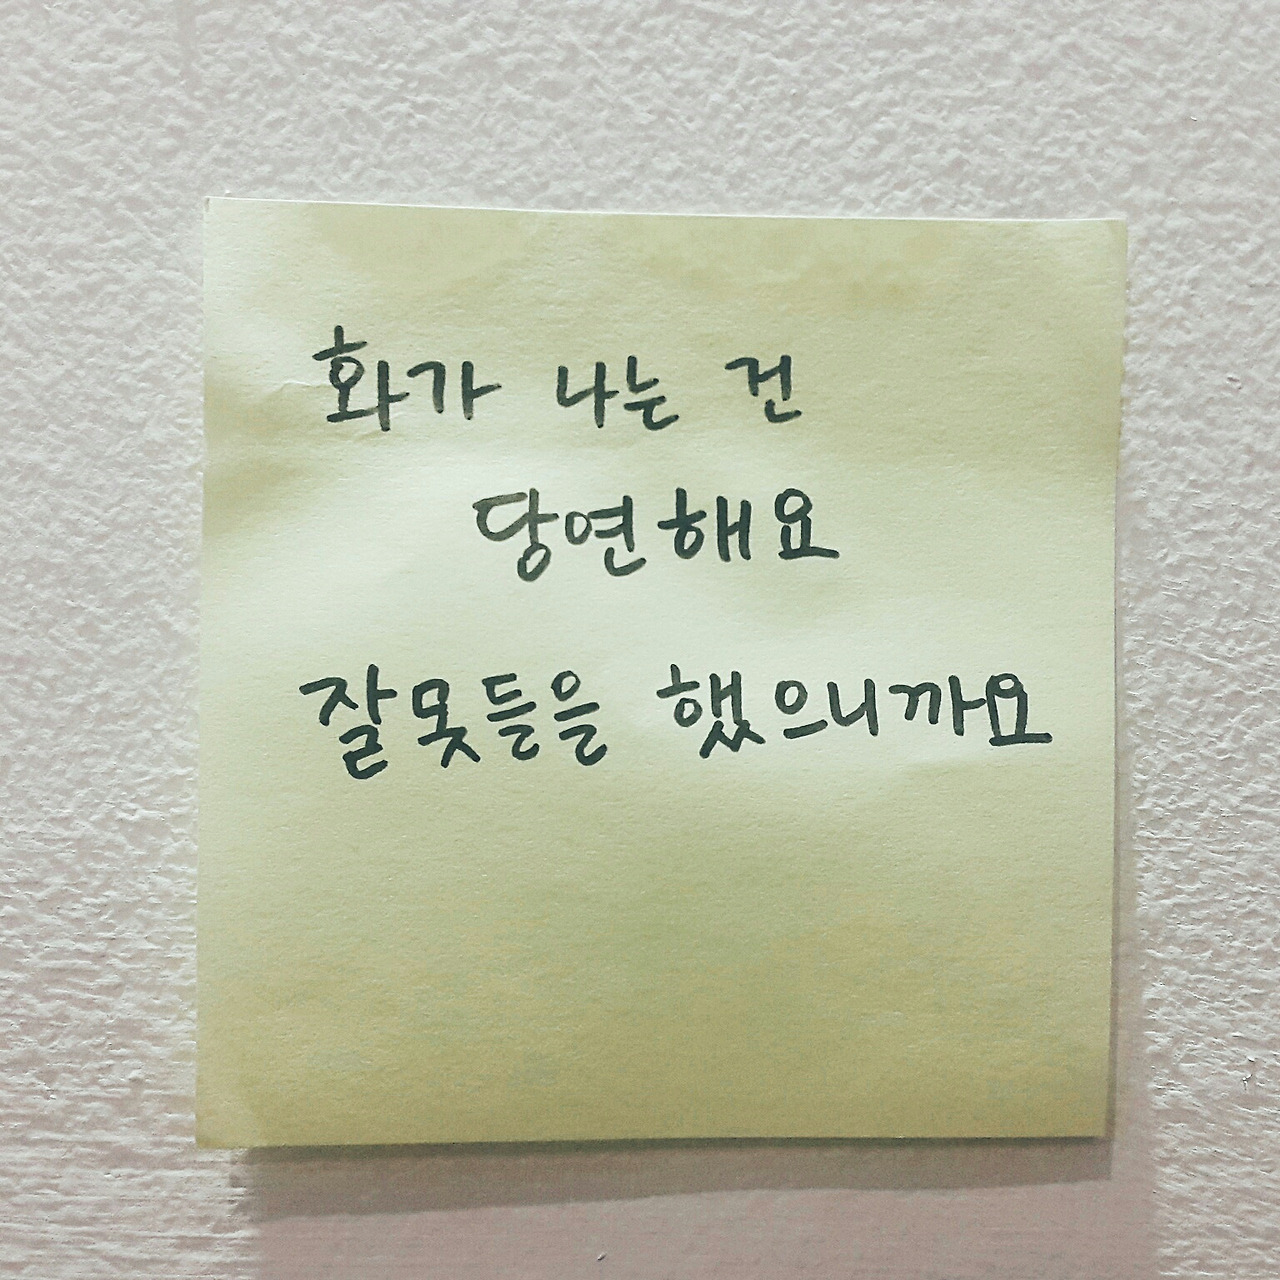 화가 나는 건
당연해요
잘못들을 했으니까요